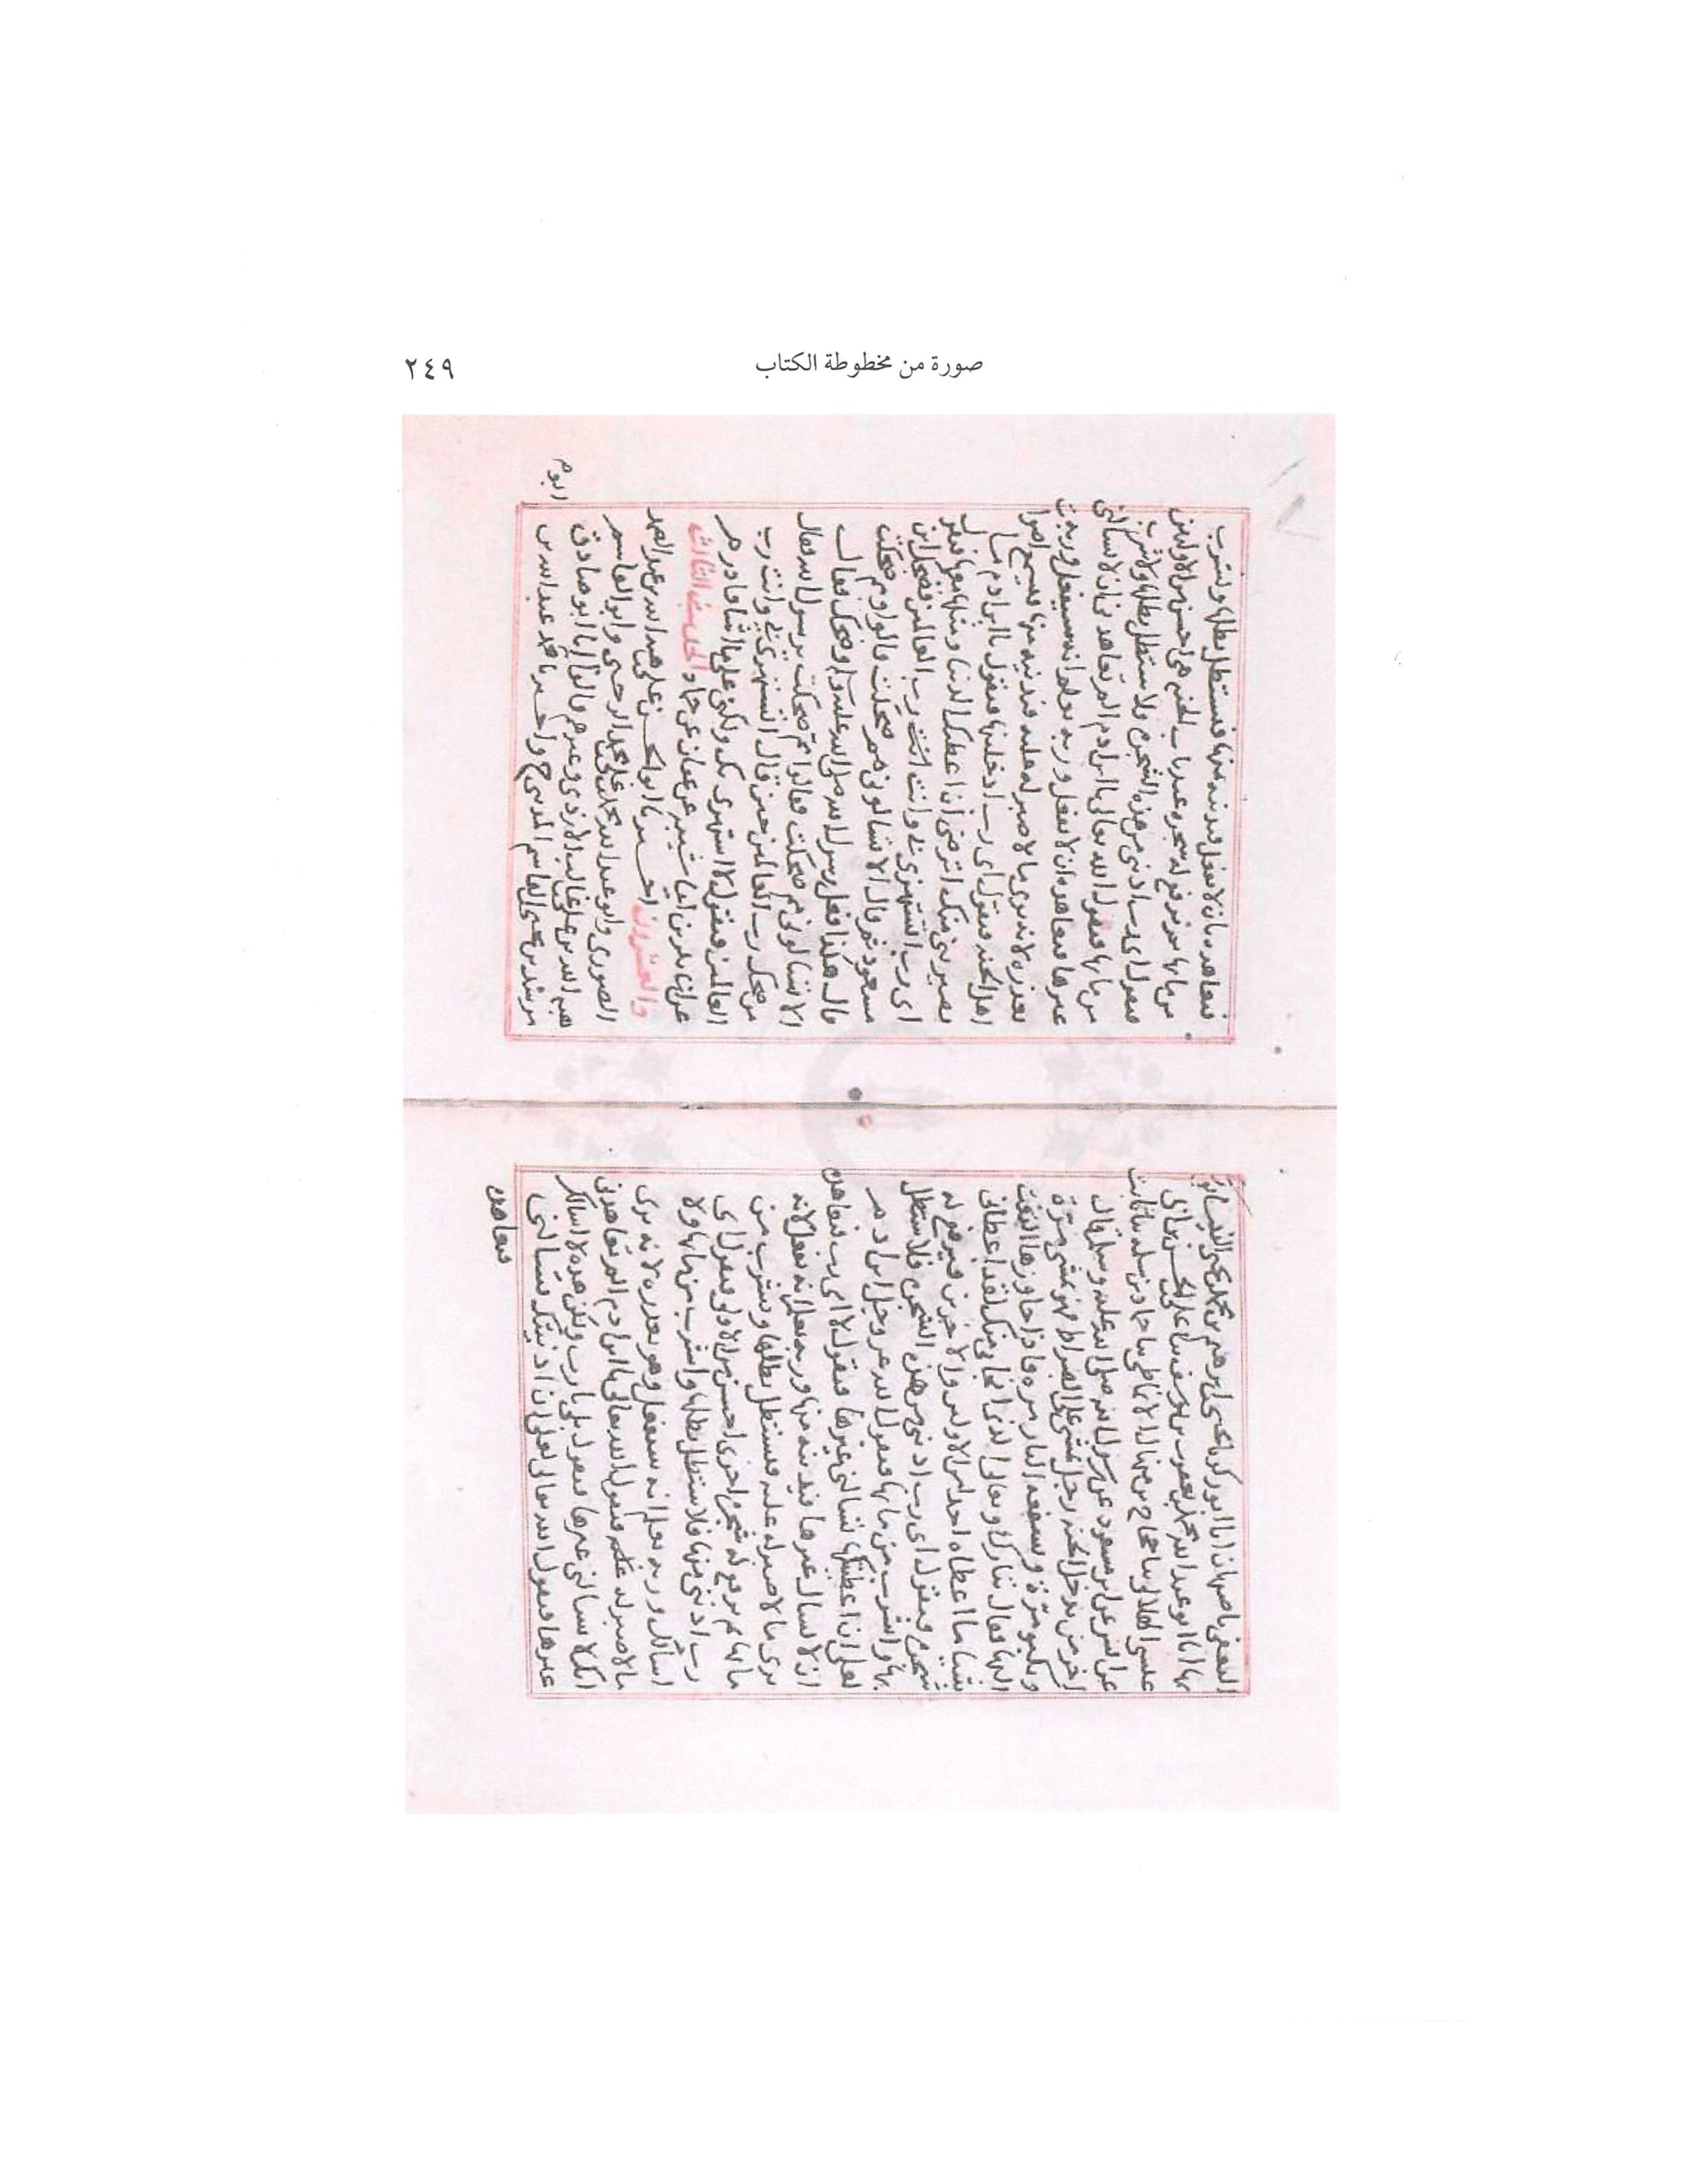 صورة من مخطوطة الكتاب
٢٤٩
الثقفي باصبهان انا ابو زكريا يحيى بن ابرهيم بن محمد بن يحيى النيسابوري
بها انا ابو عبد الله محمد بن يعقوب بن يوسف ثنا علي بن الحسن بن ابي
عيسى الهلالي ثنا حجاج بن منهال الانماطي ثنا حماد بن سلمه ثنا ثابت
عن انس عن ابن مسعود عن رسول الله صلى الله عليه وسلم قال
اخر من يدخل الجنه رجل يمشي على الصراط فهو يمشي مرة
ويكبو مرة وتسفعه النار مره فاذا جاوزها التفت
اليها فقال تبارك وتعالى الذي نجاني منك لقد اعطاني
شيئا ما اعطاه احدا من الاولين والاخرين فيرفع له
شجرة فيقول اي رب ادنني من هذه الشجرة فلاستظل
بها واشرب من مائها فيقول الله عز وجل يا ابن ادم
لعلي ان اعطيتكها تسالني غيرها فيقول لا اي رب فيعاهده
ان لا يسال غيرها فيدنيه منها وربه يعلم انه يفعل لانه
يرى ما لا صبر له عليه فيستظل بظلها ويشرب من
مائها ثم يرفع له شجرة اخرى احسن من الاولى فيقول اي
رب ادنني منها فلاستظل بظلها واشرب من مائها ولا
اسالك وربه يعلم انه سيفعل وهو يعذره لانه يرى
ما لا صبر له عليه فيقول الله تعالى يا ابن ادم الم تعاهدني
انك لا تسالني غيرها فيقول بلى يارب ولكن هذه لا اسالك
غيرها فيقول الله تعالى لعلي ان ادنيتك تسالني
فيعاهده
فيعاهده بان لا يفعل فيدنيه منها فيستظل بظلها ويشرب
من مائها ثم يرفع له شجره عند باب الجنه هي احسن من الاوليين
فيقول اي رب ادنني من هذه الشجرة فلاستظل بظلها ولاشرب
من مائها فيقول الله تعالى يا ابن ادم الم تعاهدني ان لا تسالني
غيرها فيعاهده ان لا يفعل وربه يعلم انه سيفعل وربه
يعذره لانه يرى ما لا صبر له عليه فيدنيه منها فيسمع اصوات
اهل الجنه فيقول اي رب ادخلنيها فيقول يا ابن ادم ما
يصريني منك اترضى ان اعطيك الدنيا ومثلها معها فيقول
اي رب اتستهزئ بي وانت رب العالمين فضحك ابن
مسعود ثم قال الا تسالوني مم ضحكت قالوا مم ضحكت
قال هكذا فعل رسول الله صلى الله عليه وسلم وضحك فقال
الا تسالوني مم ضحكت فقالوا مم ضحكت يرسول الله فقال
من ضحك رب العالمين حين قال اتستهزئ بي وانت رب
العالمين فيقول لا استهزئ بك ولكني على ما اشا قادر هـ
عن ابي بكر بن ابي شيبه عن عفان عن حماد الحديث الثالث
والعشرون اخبرنا ابو الحسن علي بن هبه الله بن عبد الصمد
الصوري وابو عبد الله محمد بن علي بن محمد الرحبي وابو القاسم
هبه الله بن علي بن غالب الازدي وغيرهم قالوا انا ابو صادق
مرشد بن يحيى بن القاسم المديني ح واخبرنا محمد بن عبد الله بن